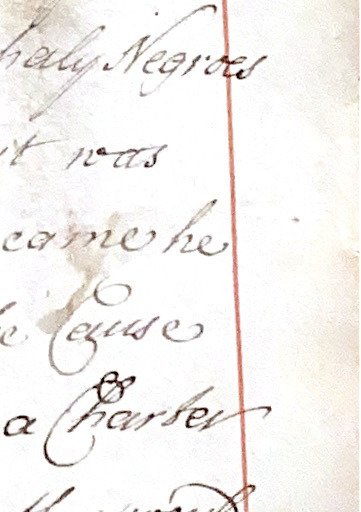 haly Negroes
it was
came he
e Cause
a Charter